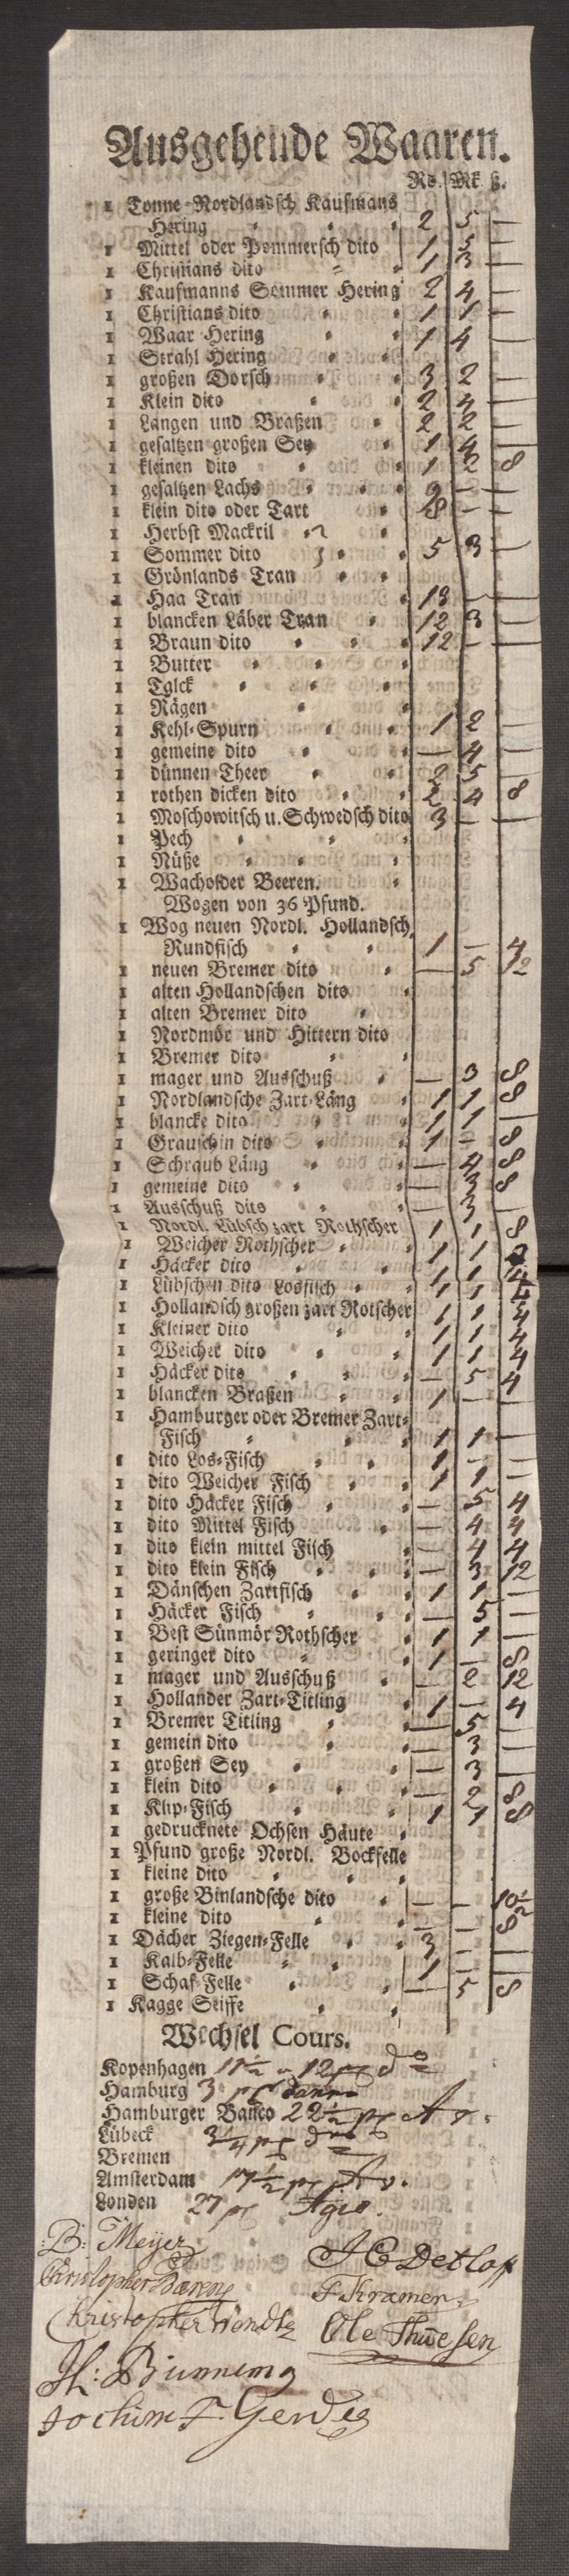 Ausgehende Waaren.
Rd. Mk ß.
1 Tonne Nordlandsch Kaufmans
Hering 2 5 —
1 Mittel oder Pommersch dito 1 5 —
1 Christians dito 1 3 —
1 Kaufmanns Sommer Hering 2 4 —
1 Christians dito 1 1 —
1 Waar Hering 1 4 —
1 Strahl Hering
1 großen Dorsch 3 2 —
1 Klein dito 2 4 —
1 Längen und Braßen 2 2 —
1 gesaltzen großen Sey 1 4 —
1 kleinen dito 1 2 8
1 gesaltzen Lachs 9 — —
1 klein dito oder Tart 8 — —
1 Herbst Mackril
1 Sommer dito 5 3 —
1 Grönlands Tran
1 Haa Tran 13 — —
1 blancken Läber Tran 12 3 —
1 Braun dito 12 — —
1 Butter
1 Talck
1 Rägen
1 Kehl-Spurn 1 2 —
1 gemeine dito — 4 —
1 dünnen Theer 2 5 —
1 rothen dicken dito 2 4 8
1 Moschowitsch u. Schwedsch dito 3 — —
1 Pech
1 Nüße
1 Wacholder Beeren.
Wogen von 36 Pfund.
1 Wog neuen Nordl. Hollandsch
Rundfisch 1 — 4
1 neuen Bremer dito — 5 12
1 alten Hollandschen dito
1 alten Bremer dito
1 Nordmör und Hittern dito
1 Bremer dito
1 mager und Ausschuß — 3 8
1 Nordlandsche Zart-Läng 1 1 8
1 blancke dito 1 1 —
1 Grauschin dito 1 — 8
1 Schraub Läng — 4 8
1 gemeine dito — 3 8
1 Ausschuß dito — 3 —
1 Nordl. Lübsch zart Rothscher 1 1 8
1 Weicher Rothscher 1 1
1 Häcker dito 1 1 4
1 Lübschen dito Losfisch 1 1 4
1 Hollandsch großen zart Rotscher 1 1 4
1 Kleiner dito 1 1 4
1 Weicher dito 1 1 4
1 Häcker dito — 5 4
1 blancken Braßen 1 — —
1 Hamburger oder Bremer Zart-
Fisch 1 1 —
1 dito Los-Fisch 1 — —
1 dito Weicher Fisch 1 1 —
1 dito Häcker Fisch — 5 4
1 dito Mittel Fisch — 4 4
1 dito klein mittel Fisch — 4 4
1 dito klein Fisch — 3 12
1 Dänschen Zartfisch 1 1 —
1 Häcker Fisch — 5 —
1 Best Sünmör Rothscher 1 1 —
1 geringer dito 1 — 8
1 mager und Ausschuß — 2 12
1 Hollander Zart-Titling 1 — 4
1 Bremer Titling — 5 —
1 gemein dito — 3 —
1 großen Sey — 3 —
1 klein dito — 2 8
1 Klip-Fisch 1 1 8
1 gedrucknete Ochsen Häute
1 Pfund große Nordl. Bockfelle
1 kleine dito
1 große Binlandsche dito — — 10½
1 kleine dito — — 8
1 Dächer Ziegen-Felle 3 — —
1 Kalb-Felle 1 — —
1 Schaf-Felle — 5 8
1 Kagge Seiffe
Wechsel Cours.
Kopenhagen 11½ a 12 pc do
Hamburg 3 pC
Hamburger Banco 22½ pc
Lübeck 3¼ pc
Bremen
Amsterdam 17½ pc
Londen 27 pc Agio.
B: Meyer
J C Detlof
F Kramer
Christopher Wendts
Ole Thuesen
H: Bünning
Jochim F. Gerdes